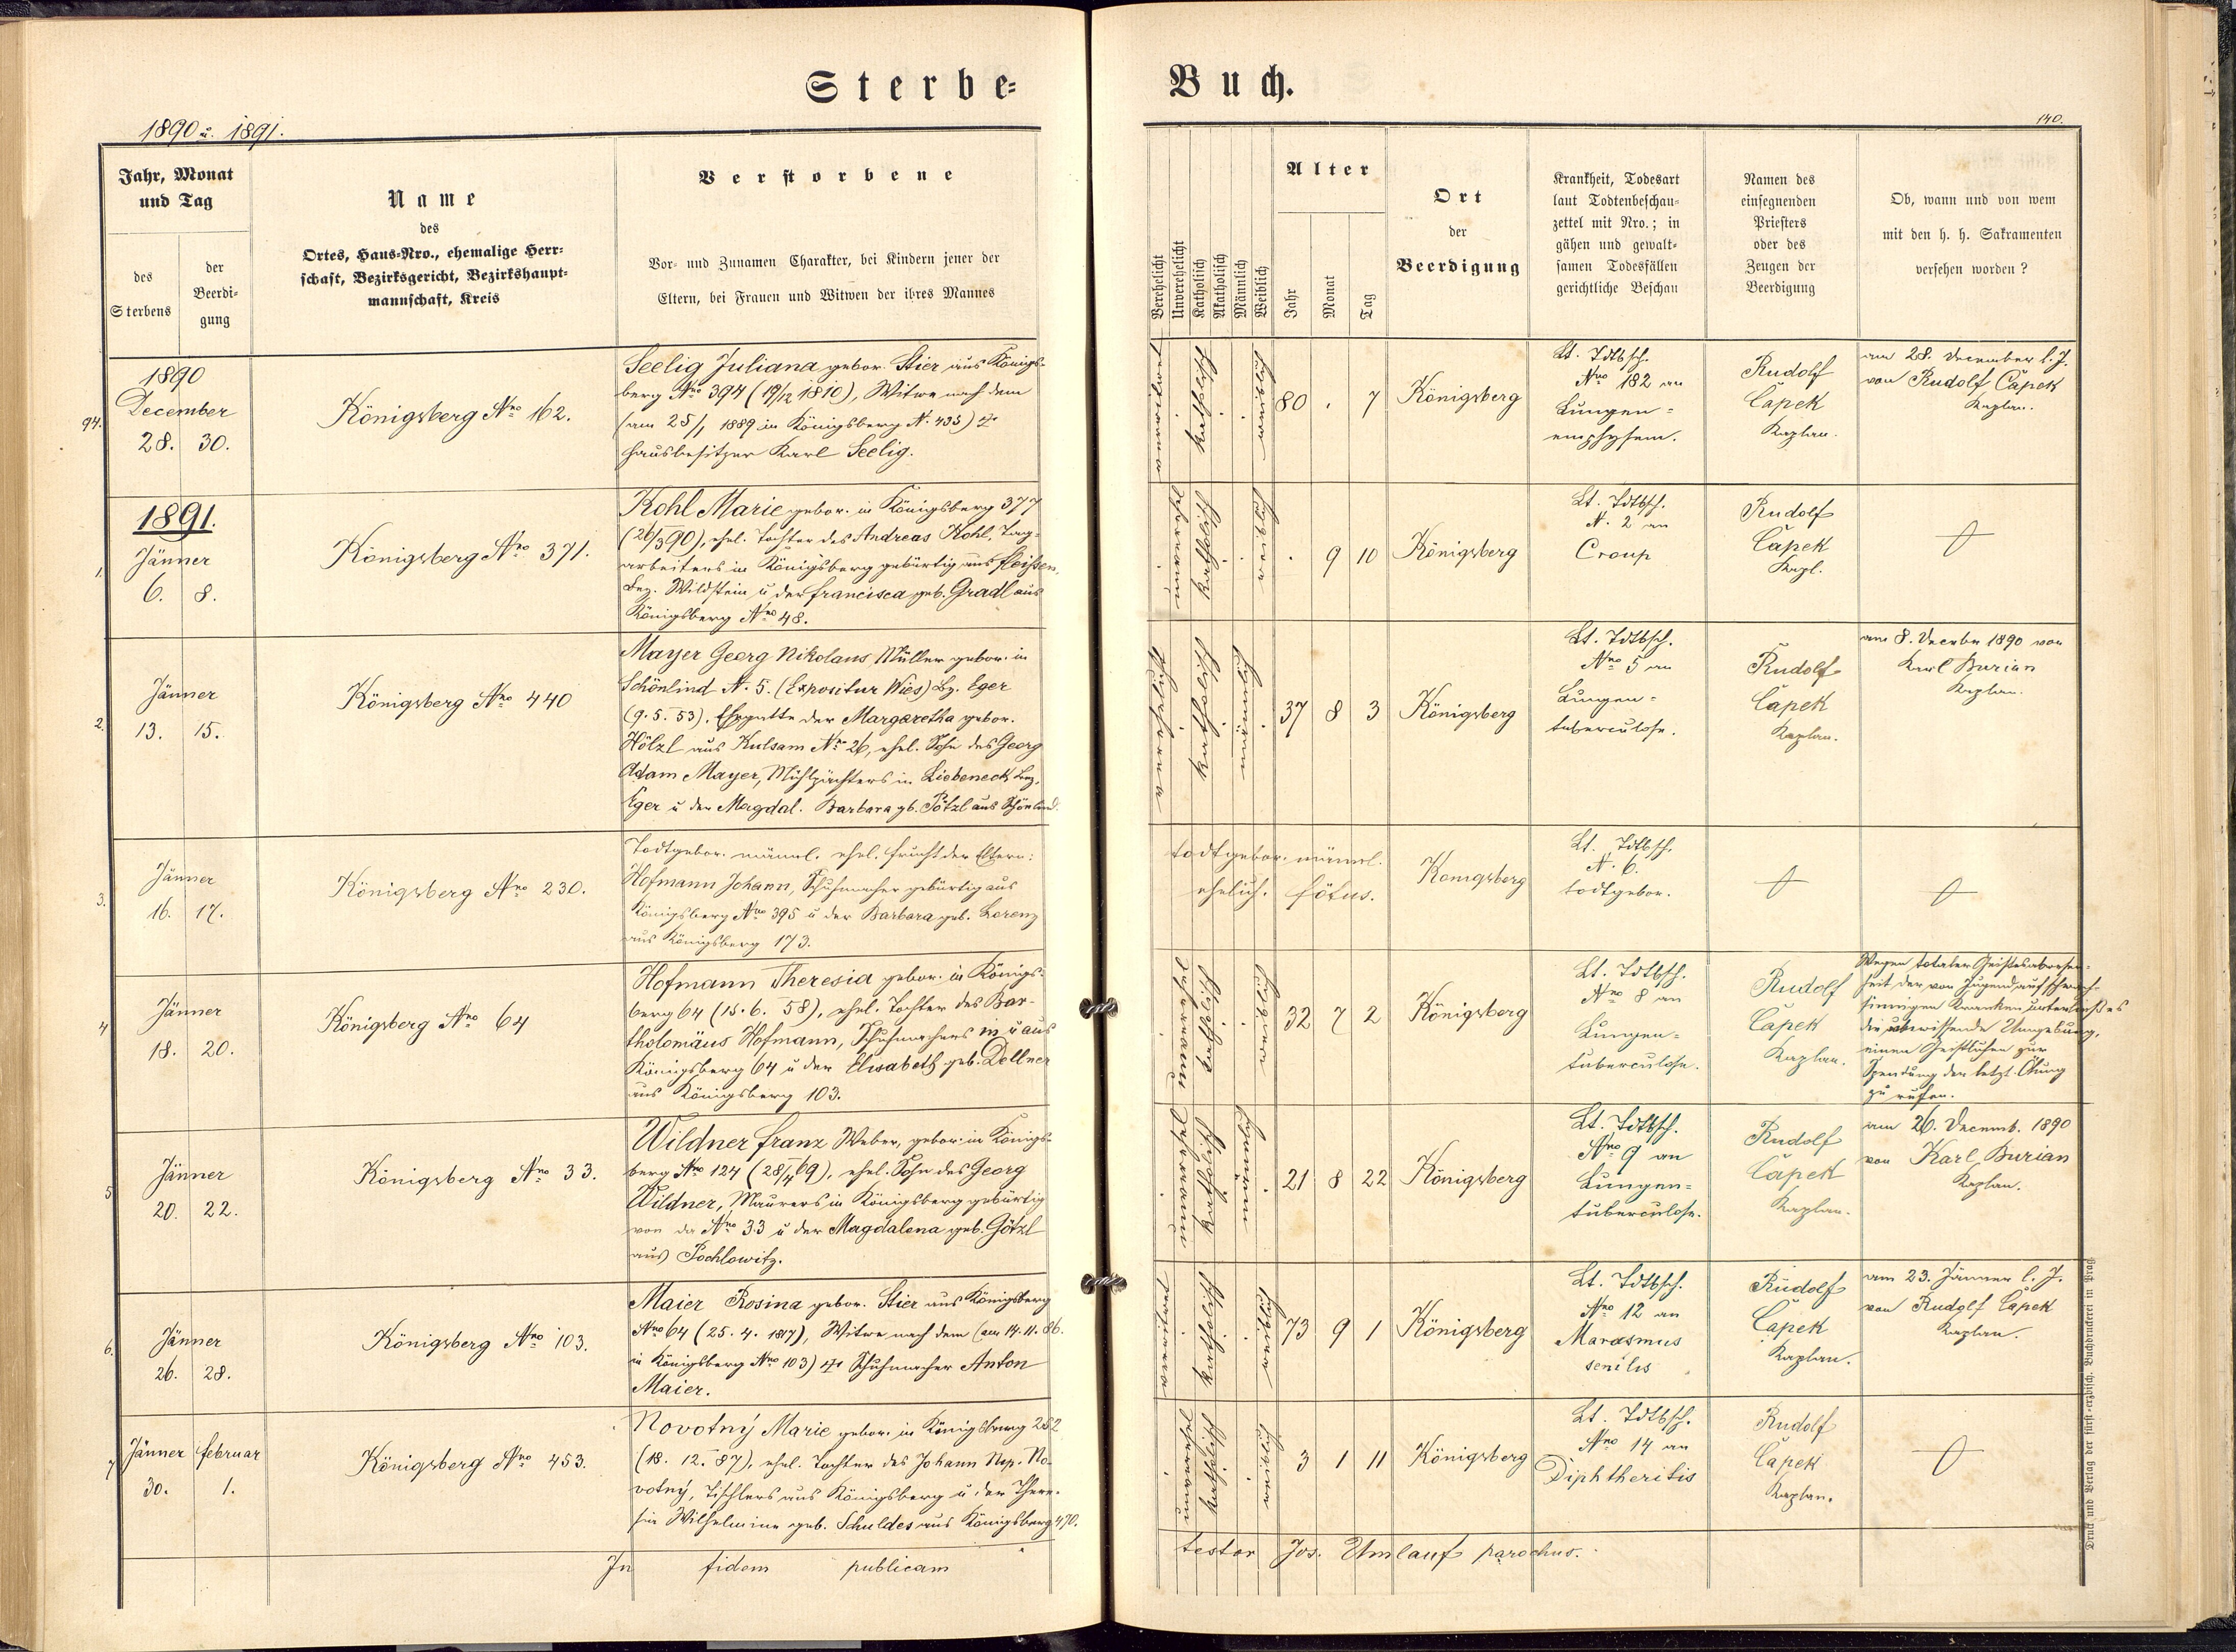 Sterbe-
Buch.
1890 u. 1891.
140.
Jahr, Monat
und Tag
des
Sterbens
der
Beerdi-
gung
Name
des
Ortes, Haus-Nro., ehemalige Herr-
schaft, Bezirksgericht, Bezirkshaupt-
mannschaft, Kreis
Verstorbene
Vor- und Zunamen Charakter, bei Kindern jener der
Eltern, bei Frauen und Witwen der ihres Mannes
Verehelicht
Unverehelicht
Katholisch
Akatholisch
Männlich
Weiblich
Alter
Jahr
Monat
Tag
Ort
der
Beerdigung
Krankheit, Todesart
laut Todtenbeschau-
zettel mit Nro.; in
gähen und gewalt-
samen Todesfällen
gerichtliche Beschau
Namen des
einsegnenden
Priesters
oder des
Zeugen der
Beerdigung
Ob, wann und von wem
mit den h. h. Sakramenten
versehen worden?
94.
1890
December
28. 30.
Königsberg Nro 162.
Seelig Juliana gebor. Stier aus Königs-
berg Nro 394 (19/12 1810), Witwe nach dem
(am 25/1 1889 in Königsberg N. 435) †
Hausbesitzer Karl Seelig.
verwitwet
katholisch
weiblich
80 . 7
Königsberg
Lt. Tdtbsch.
Nro 182 an
Lungen-
emphysem.
Rudolf
Čapek
Kaplan.
am 28. December l. J.
von Rudolf Čapek
Kaplan.
1891.
1.
Jänner
6. 8.
Königsberg Nro 371.
Kohl Marie gebor. in Königsberg 377
(26/3 90), ehel. Tochter des Andreas Kohl, Tag-
arbeiters in Königsberg gebürtig aus Fleissen,
Bez. Wildstein u der Francisca geb. Gradl aus
Königsberg Nro 48.
katholisch
. 9 10
Königsberg
Lt. Tdtbsch.
N. 2 an
Croup
Rudolf
Čapek
Kapl.
2.
Jänner
13. 15.
Königsberg Nro 440
Mayer Georg Nikolaus, Müller gebor. in
Schönlind N. 5. (Expositur Wies) Bz. Eger
(9. 5. 53), Ehegatte der Margaretha gebor.
Hölzl aus Kulsam Nro 26, ehel. Sohn des Georg
Adam Mayer, Mühlpächters in Liebeneck Bez.
Eger u der Magdal. Barbara gb. Pötzl aus Schönlind.
katholisch
männlich
37 8 3
Königsberg
Lt. Tdtbsch.
Nro 5 an
Lungen-
tuberculose.
Rudolf
Čapek
Kaplan.
am 8. Decbr 1890 von
Karl Burian
Kaplan.
3.
Jänner
16. 17.
Königsberg Nro 230.
Todtgebor. männl. ehel. Frucht der Eltern:
Hofmann Johann, Schuhmacher gebürtig aus
Königsberg Nro 395 u der Barbara geb. Lorenz
aus Königsberg 173.
todtgebor. männl.
ehelich. Fötus.
Königsberg
Lt. Tdtbsch.
N. 6.
todtgebor.
4
Jänner
18. 20.
Königsberg Nro 64
Hofmann Theresia gebor. in Königs-
berg 64 (15. 6. 58), ehel. Tochter des Bar-
tholomäus Hofmann, Schuhmachers in u aus
Königsberg 64 u der Elisabeth geb. Dellner
aus Königsberg 103.
katholisch
32 7 2
Königsberg
Lt. Tdtbsch.
Nro 8 an
Lungen-
tuberculose.
Rudolf
Čapek
Kaplan.
Wegen totaler Geistesabwesen-
heit der von Jugend auf schwach-
sinnigen Kranken unterließ es
die Umgebung,
einen Geistlichen zur
Spendung der letzt. Ölung
zu rufen.
5
Jänner
20. 22.
Königsberg Nro 33.
Wildner Franz Weber, gebor. in Königs-
berg Nro 124 (28/4 69), ehel. Sohn des Georg
Wildner, Maurers in Königsberg gebürtig
von da Nro 33 u der Magdalena geb. Götzl
aus Pochlowitz.
katholisch
männlich
21 8 22
Königsberg
Lt. Tdtbsch.
Nro 9 an
Lungen-
tuberculose.
Rudolf
Čapek
Kaplan.
am 26. Decemb. 1890
von Karl Burian
Kaplan.
6.
Jänner
26. 28.
Königsberg Nro 103.
Maier Rosina gebor. Stier aus Königsberg
Nro 64 (25. 4. 1817), Witwe nach dem (am 14. 11. 86.
in Königsberg Nro 103) † Schuhmacher Anton
Maier.
verwitwet
katholisch
weiblich
73 9 1
Königsberg
Lt. Tdtbsch.
Nro 12 an
Marasmus
senilis
Rudolf
Čapek
Kaplan.
am 23. Jänner l. J.
von Rudolf Čapek
Kaplan.
7
Jänner Februar
30. 1.
Königsberg Nro 453.
Novotný Marie gebor. in Königsberg 252
(18. 12. 87), ehel. Tochter des Johann Nep. No-
votný, Tischlers aus Königsberg u der There-
sia Wilhelmine geb. Schuldes aus Königsberg 470.
katholisch
weiblich
3 1 11
Königsberg
Lt. Tdtbsch.
Nro 14 an
Diphtheritis
Rudolf
Čapek
Kaplan.
In fidem publicam
testor Jos. Umlauf parochus.
Druck und Verlag der fürst-erzbisch. Buchdruckerei in Prag.